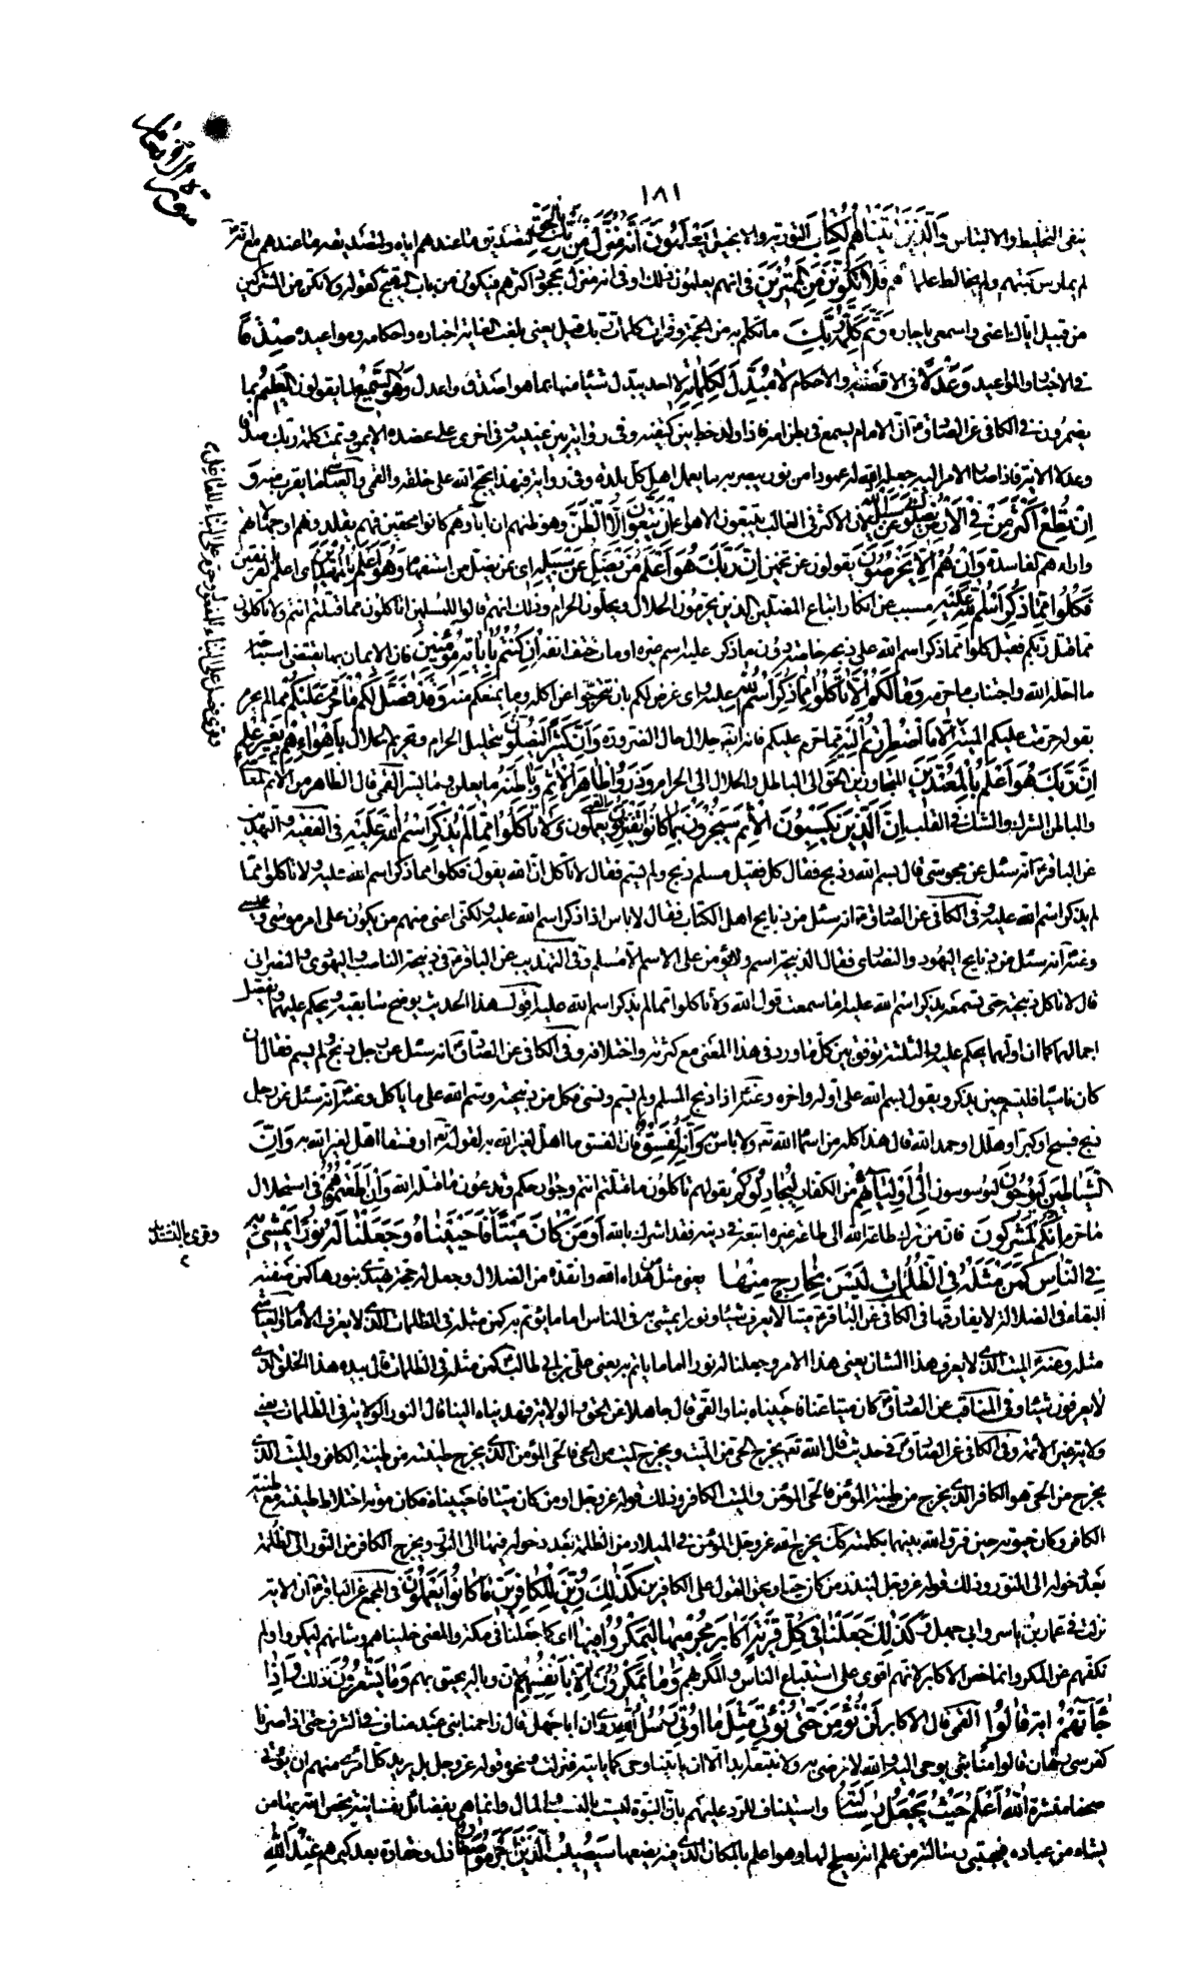 سورة الأنعام
١٨١
ينفى التخليط والالتباس وَالَّذِينَ آتَيْنَاهُمُ الْكِتَابَ التورية والانجيل يَعْلَمُونَ أَنَّهُ مُنَزَّلٌ مِنْ رَبِّكَ بِالْحَقِّ لتصديق ما عندهم اياه ولتصديقه ما عندهم مع انه
لم يمارس كتبهم ولم يخالط علماءهم فَلَا تَكُونَنَّ مِنَ الْمُمْتَرِينَ فى انهم يعلمون ذلك او فى انه منزل بجحود اكثرهم فيكون من باب التهييج كقوله ولا تكونن من المشركين
من قبيل اياك اعنى واسمعى ياجاره وَتَمَّتْ كَلِمَةُ رَبِّكَ ما تكلم به من الحجة وقرئ كلمات ربك قيل يعنى بلغت الغاية اخباره واحكامه ومواعيده صِدْقًا
فى الاخبار والمواعيد وَعَدْلًا فى الاقضية والاحكام لَا مُبَدِّلَ لِكَلِمَاتِهِ لا احد يبدل شيئا منها بما هو اصدق واعدل وَهُوَ السَّمِيعُ لما يقولون الْعَلِيمُ بما
يضمرون فى الكافى عن الصادق ان الامام يسمع فى بطن امه فاذا ولد خط بين كتفيه وفى رواية بين عينيه وفى اخرى على عضده الايمن وتمت كلمة ربك صدقا
وعدلا الاية فاذا صار الامر اليه جعل الله له عمودا من نور يبصر به ما يعمل اهل كل بلدة وفى رواية فبهذا يحتج الله على خلقه والقمى والعياشى ما يقرب منه وَ
إِنْ تُطِعْ أَكْثَرَ مَنْ فِي الْأَرْضِ يُضِلُّوكَ عَنْ سَبِيلِ اللَّهِ لان الاكثر فى الغالب يتبعون الاهواء إِنْ يَتَّبِعُونَ إِلَّا الظَّنَّ وهو ظنهم ان اباءهم كانوا محقين فهم يقلدونهم او جهالاتهم
واراءهم الفاسدة وَإِنْ هُمْ إِلَّا يَخْرُصُونَ يقولون عن تخمين إِنَّ رَبَّكَ هُوَ أَعْلَمُ مَنْ يَضِلُّ عَنْ سَبِيلِهِ وَهُوَ أَعْلَمُ بِالْمُهْتَدِينَ اى اعلم بالفريقين
فَكُلُوا مِمَّا ذُكِرَ اسْمُ اللَّهِ عَلَيْهِ مسبب عن انكار اتباع المضلين الذين يحرمون الحلال ويحلون الحرام وذلك انهم قالوا للمسلمين اتاكلون مما قتلتم انتم ولا تاكلون
مما قتل ربكم فقيل كلوا مما ذكر اسم الله على ذبحه خاصة دون ما ذكر عليه اسم غيره او مات حتف انفه إِنْ كُنْتُمْ بِآيَاتِهِ مُؤْمِنِينَ فان الايمان بها يقتضى استباحة
ما احله الله واجتناب ما حرمه وَمَا لَكُمْ أَلَّا تَأْكُلُوا مِمَّا ذُكِرَ اسْمُ اللَّهِ عَلَيْهِ واى غرض لكم بان تتحرجوا عن اكله وما يمنعكم منه وَقَدْ فَصَّلَ لَكُمْ مَا حَرَّمَ عَلَيْكُمْ مما لم يحرم
بقوله حرمت عليكم الميتة إِلَّا مَا اضْطُرِرْتُمْ إِلَيْهِ مما حرم عليكم فانه ايضا حلال حال الضرورة وَإِنَّ كَثِيرًا لَيُضِلُّونَ بتحليل الحرام وتحريم الحلال بِأَهْوَائِهِمْ بِغَيْرِ عِلْمٍ
إِنَّ رَبَّكَ هُوَ أَعْلَمُ بِالْمُعْتَدِينَ المتجاوزين الحق الى الباطل والحلال الى الحرام وَذَرُوا ظَاهِرَ الْإِثْمِ وَبَاطِنَهُ ما يعلن وما يسر القمى قال الظاهر من الاثم المعاصى
والباطن الشرك والشك فى القلب إِنَّ الَّذِينَ يَكْسِبُونَ الْإِثْمَ سَيُجْزَوْنَ بِمَا كَانُوا يَقْتَرِفُونَ يعملون وَلَا تَأْكُلُوا مِمَّا لَمْ يُذْكَرِ اسْمُ اللَّهِ عَلَيْهِ فى الفقيه والتهذيب
عن الباقر انه سئل عن مجوسى قال بسم الله وذبح فقال كل فقيل مسلم ذبح ولم يسم فقال لا تاكل ان الله يقول فكلوا مما ذكر اسم الله عليه ولا تاكلوا مما
لم يذكر اسم الله عليه وفى الكافى عن الصادق انه سئل من ذبايح اهل الكتاب فقال لا باس اذا ذكر اسم الله عليه ولكنى اعنى منهم من يكون على امر موسى وعيسى
وعنه انه سئل من ذبايح اليهود والنصارى فقال الذبيحة اسم ولا يؤمن على الاسم الا مسلم وفى التهذيب عن الباقر فى ذبيحة الناصب واليهودى والنصرانى
قال لا تاكل ذبيحته حتى تسمعه يذكر اسم الله عليه اما سمعت قول الله ولا تاكلوا مما لم يذكر اسم الله عليه اقول هذا الحديث يوضح سابقيه ويحكم عليهما ويفصل
اجمالهما كما ان اولهما يحكم عليه والثلثة توفق بين كل ما ورد فى هذا المعنى مع كثرته واختلافه وفى الكافى عن الصادق انه سئل عن رجل ذبح ولم يسم فقال ان
كان ناسيا فليسم حين يذكر ويقول بسم الله على اوله واخره وعنه اذا ذبح المسلم ولم يسم ونسى فكل من ذبيحته وسم الله على ما ياكل وعنه انه سئل عن رجل
ذبح فسبح او كبر او هلل او حمد الله قال هذا كله من اسماء الله تعالى ولا باس به وَإِنَّهُ لَفِسْقٌ فان الفسق ما اهل لغير الله به لقوله او فسقا اهل لغير الله به وَإِنَّ
الشَّيَاطِينَ لَيُوحُونَ ليوسوسون إِلَى أَوْلِيَائِهِمْ من الكفار لِيُجَادِلُوكُمْ بقولهم تاكلون ما قتلتم انتم وجوارحكم وتدعون ما قتله الله وَإِنْ أَطَعْتُمُوهُمْ فى استحلال
ما حرم إِنَّكُمْ لَمُشْرِكُونَ فان من ترك طاعة الله الى طاعة غيره واتبعه فى دينه فقد اشرك بالله أَوَمَنْ كَانَ مَيْتًا فَأَحْيَيْنَاهُ وَجَعَلْنَا لَهُ نُورًا يَمْشِي بِهِ
فِي النَّاسِ كَمَنْ مَثَلُهُ فِي الظُّلُمَاتِ لَيْسَ بِخَارِجٍ مِنْهَا يعنى مثل من هداه الله وانقذه من الضلال وجعل له حجة يهتدى بنورها كمن صفته
البقاء فى الضلالة لا يفارقها فى الكافى عن الباقر ميتا لا يعرف شيئا ونورا يمشى به فى الناس اماما يؤتم به كمن مثله فى الظلمات الذى لا يعرف الامام العياشى
مثله وعنه الميت الذى لا يعرف هذا الشان يعنى هذا الامر وجعلنا له نورا اماما ياتم به يعنى على بن ابى طالب كمن مثله فى الظلمات قال بيده هذا الخلق الذى
لا يعرفون شيئا وفى المناقب عن الصادق كان ميتا عنا فاحييناه بنا والقمى قال جاهلا عن الحق والولاية فهديناه الينا قال النور الولاية فى الظلمات يعنى
ولاية غير الائمة وفى الكافى عن الصادق فى حديث قال الله تعالى يخرج الحى من الميت ويخرج الميت من الحى فالحى المؤمن الذى يخرج طينته من طينة الكافر والميت الذى
يخرج من الحى هو الكافر الذى يخرج من طينة المؤمن فالحى المؤمن والميت الكافر وذلك قوله عز وجل اومن كان ميتا فاحييناه فكان موته اختلاط طينته مع طينة
الكافر وكان حيوته حين فرق الله بينهما بكلمته كذلك يخرج الله عز وجل المؤمن فى الميلاد من الظلمة بعد دخوله فيها الى النور ويخرج الكافر من النور الى الظلمة
بعد دخوله الى النور وذلك قوله عز وجل لينذر من كان حيا ويحق القول على الكافرين كَذَلِكَ زُيِّنَ لِلْكَافِرِينَ مَا كَانُوا يَعْمَلُونَ فى المجمع عن الباقر ان الاية
نزلت فى عمار بن ياسر وابى جهل وَكَذَلِكَ جَعَلْنَا فِي كُلِّ قَرْيَةٍ أَكَابِرَ مُجْرِمِيهَا لِيَمْكُرُوا فِيهَا اى كما جعلنا فى مكة والمعنى خليناهم وشانهم ليمكروا ولم
نكفهم عن المكر وانما خص الاكابر لانهم اقوى على استتباع الناس والمكر بهم وَمَا يَمْكُرُونَ إِلَّا بِأَنْفُسِهِمْ لان وباله يحيق بهم وَمَا يَشْعُرُونَ ذلك وَإِذَا
جَاءَتْهُمْ آيَةٌ قَالُوا القمى قال الاكابر لَنْ نُؤْمِنَ حَتَّى نُؤْتَى مِثْلَ مَا أُوتِيَ رُسُلُ اللَّهِ روى ان ابا جهل قال زاحمنا بنى عبد مناف فى الشرف حتى اذا صرنا
كفرسى رهان قالوا منا نبى يوحى اليه والله لا نرضى به ولا نتبعه ابدا الا ان ياتينا وحى كما ياتيه فنزلت ونحوه قوله عز وجل بل يريد كل امرئ منهم ان يؤتى
صحفا منشرة اللَّهُ أَعْلَمُ حَيْثُ يَجْعَلُ رِسَالَتَهُ واستيناف للرد عليهم بان النبوة ليست بالنسب والمال وانما هى بفضائل نفسانية يخص الله بها من
يشاء من عباده فيجتبى رسالته من علم انه يصلح لها وهو اعلم بالمكان الذى فيه يضعها سَيُصِيبُ الَّذِينَ أَجْرَمُوا صَغَارٌ ذل وحقارة بعد كبرهم عِنْدَ اللَّهِ
وقرئ فصل على البناء للمفعول وحرم على البناء للفاعل
وقرئ بالتشديد